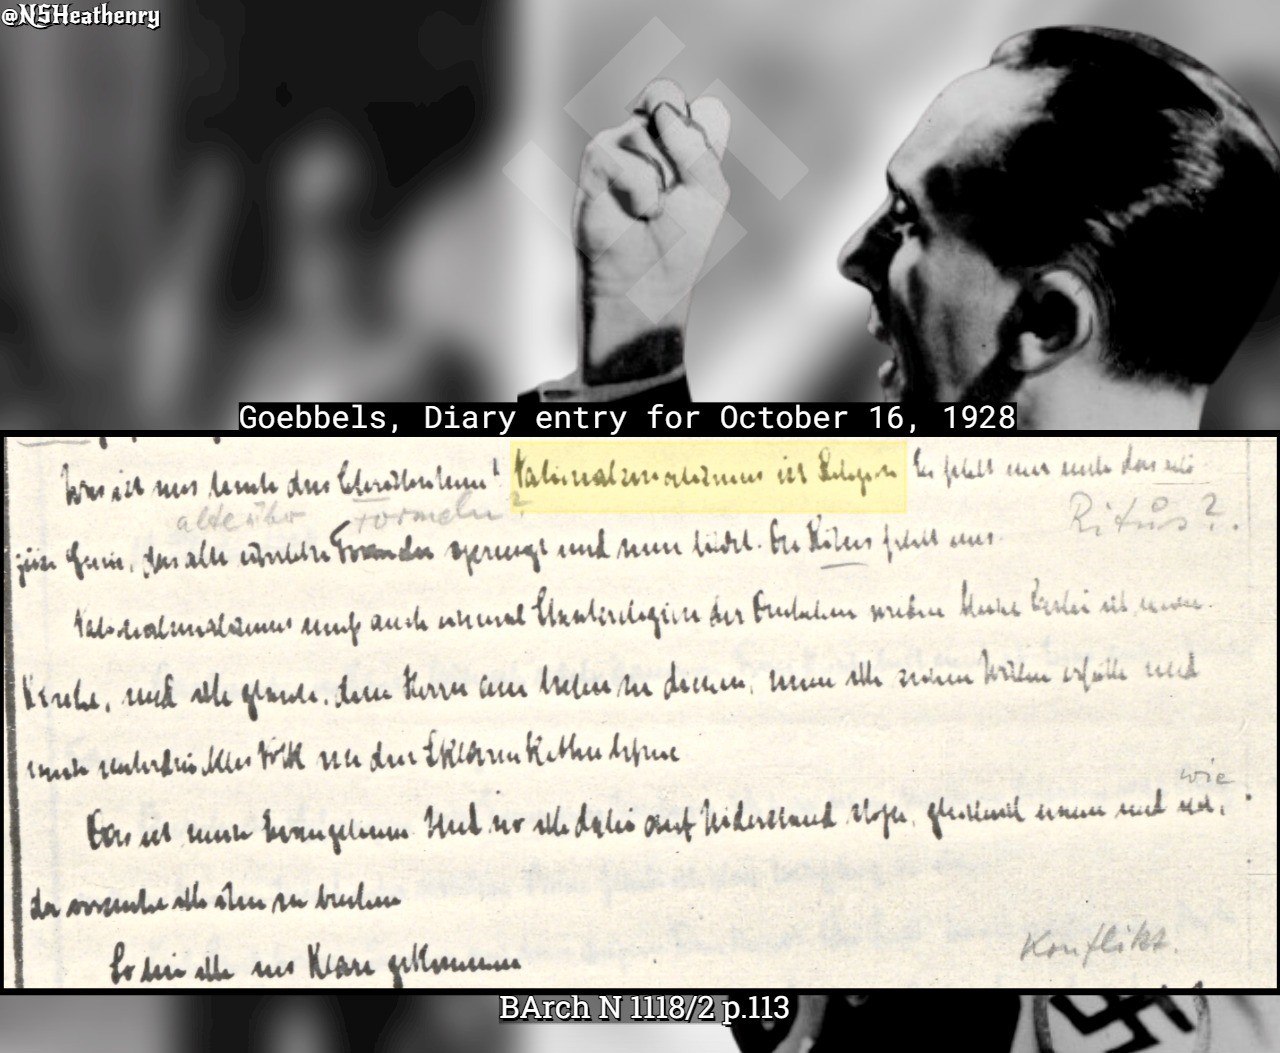 @NSHeathenry
Goebbels, Diary entry for October 16, 1928
Was ist uns heute das Christentum? Nationalsozialismus ist Religion. Es fehlt nur noch das reli-
alte über Formeln? Ritus?.
giöse Genie, das alte überlebte Formeln sprengt und neue bildet. Der Ritus fehlt uns.
Nationalsozialismus muß auch einmal Staatsreligion der Deutschen werden. Meine Partei ist meine
Kirche, und ich glaube, dem Herrn am besten zu dienen, wenn ich seinen Willen erfülle und
mein unterdrücktes Volk von den Sklavenketten befreie.
wie
Das ist mein Evangelium. Und wo ich dabei auf Widerstand stoße, gleichviel wann und wo,
da versuche ich ihn zu brechen
So bin ich ins Klare gekommen
Konflikt.
BArch N 1118/2 p.113